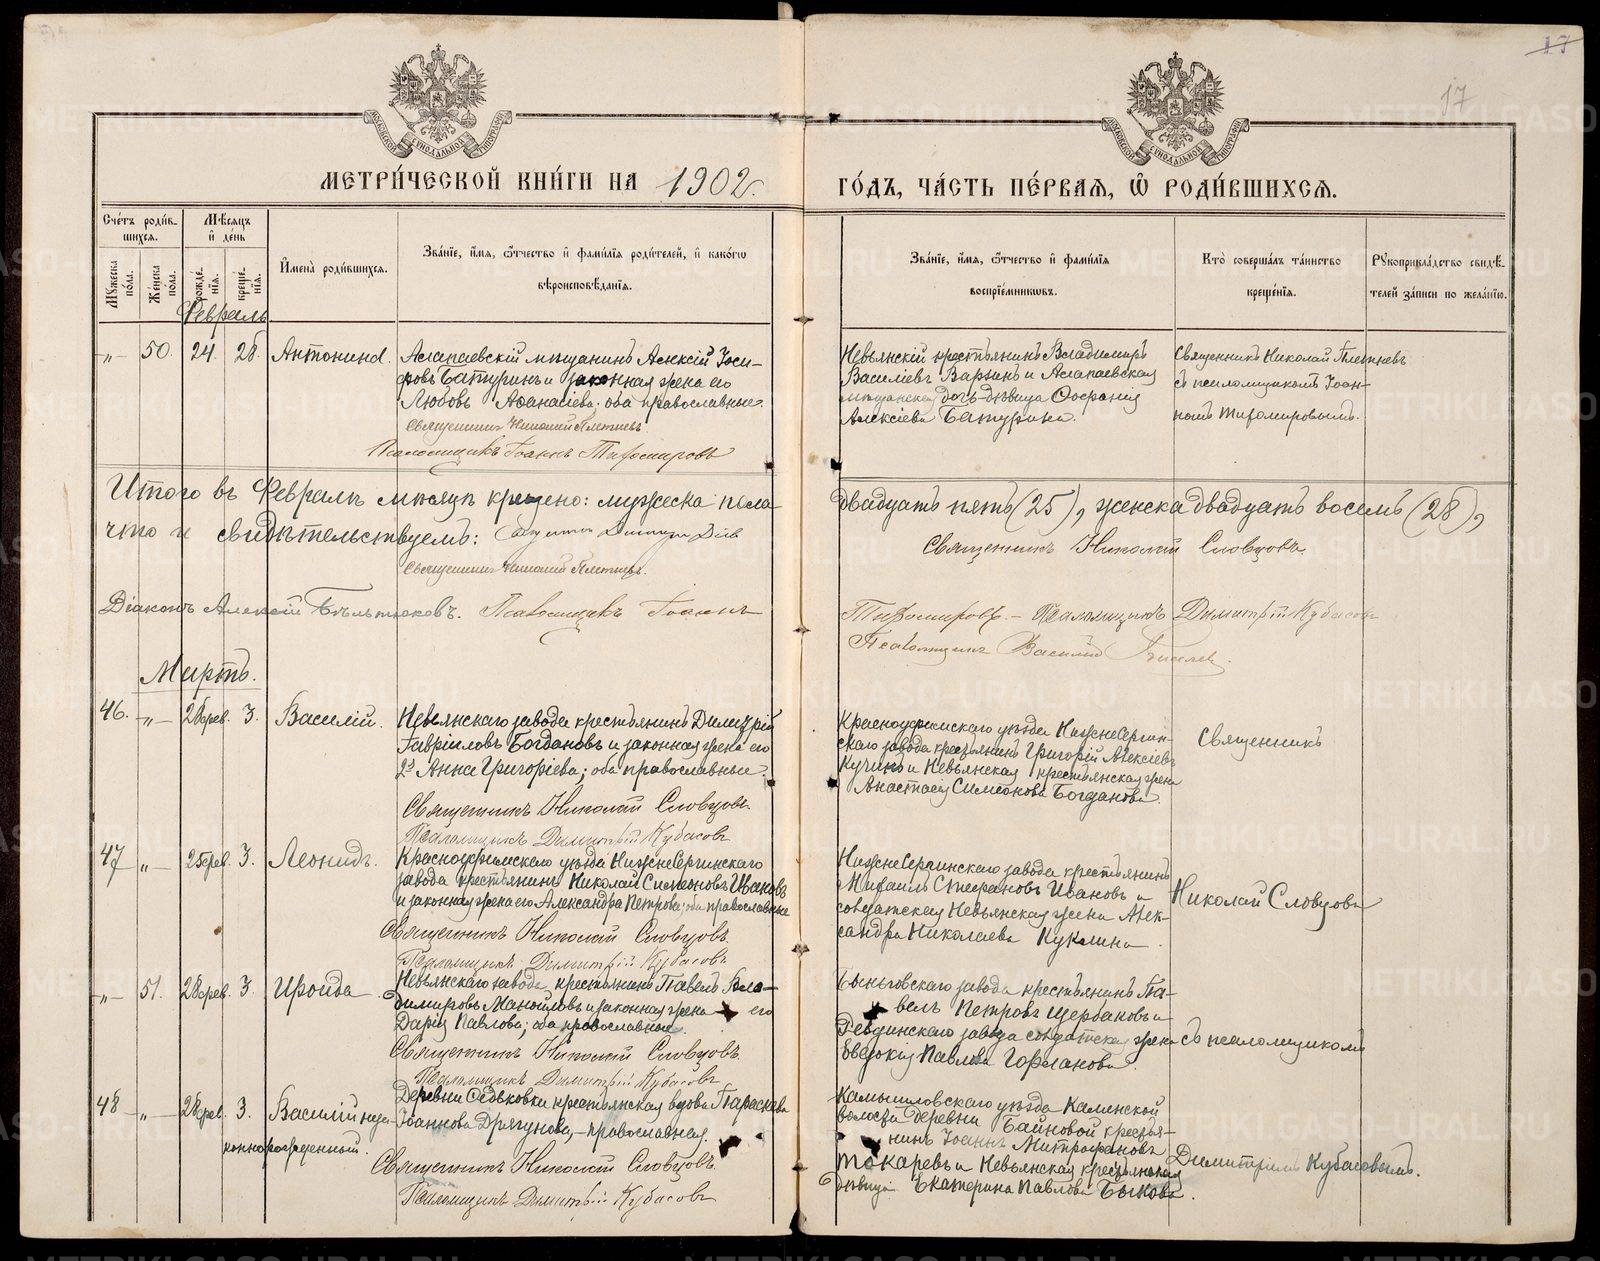 17
17
МОСКОВСКОЙ СѴНОДАЛЬНОЙ ТИПОГРАФІИ
МОСКОВСКОЙ СѴНОДАЛЬНОЙ ТИПОГРАФІИ
МЕТРИ́ЧЕСКОЙ КНИ́ГИ НА 1902 г.
ГО́ДЪ, ЧА́СТЬ ПЕ́РВАѦ, Ѿ РОДИ́ВШИХСѦ.
Сче́тъ роди́в-
шихся.
Мѣ́сѧцъ
и҆ де́нь
Мꙋ́жеска
по́ла.
Же́нска
пола.
рожде́-
нїѧ.
креще́-
нїѧ.
И҆мена̀ роди́вшихсѧ.
Зва́нїе, и҆́мѧ, ѻ҆́тчество и҆ фами́лїѧ роди́телей, и҆ како́гѡ
вѣроисповѣ́данїѧ.
Зва́нїе, и҆́мѧ, ѻ҆́тчество и҆ фами́лїѧ
воспрїе́мникѡвъ.
Кто̀ соверша́лъ та́инство
креще́нїѧ.
Рꙋкоприкла́дство свидѣ́-
телей за́писи по жела́нїю.
Февраль
„ 50. 24 28 Антонина. Алапаевскій мѣщанинъ Алексій Іоси-
фовъ Батуринъ и законная жена его
Любовь Аѳанасіева. оба православные.
Священникъ Николай Плетневъ
Псаломщикъ Іоаннъ Тихомировъ
Невьянскій крестьянинъ Владимиръ
Василіевъ Варзинъ и Алапаевская
мѣщанская дочь-дѣвица Софронія
Алексіева Батурина.
Священникъ Николай Плетневъ
съ псаломщикомъ Іоан-
номъ Тихомировымъ.
Итого въ Февралѣ мѣсяцѣ крещено: мужеска пола
двадцать пять (25), женска двадцать восемь (28),
что и свидѣтельствуемъ:
Священникъ Николай Словцовъ
Священникъ Николай Плетневъ.
Діаконъ Алексій Бѣльтюковъ. Псаломщикъ Іоаннъ
Тихомировъ. – Псаломщикъ Димитрій Кубасовъ
Псаломщикъ Василій
Мартъ.
46. „ 28 фев. 3. Василій. Невьянскаго завода крестьянинъ Димитрій
Гавріиловъ Богдановъ и законная жена его
Анна Григоріева; оба православные.
Священникъ Николай Словцовъ
Псаломщикъ Димитрій Кубасовъ
Красноуфимскаго уѣзда НижнеСергин-
скаго завода крестьянинъ Григорій Алексіевъ
Кучинъ и Невьянская крестьянская жена
Анастасія Симеонова Богданова
Священникъ
47 „ 25 фев. 3. Леонидъ. Красноуфимскаго уѣзда НижнеСергинскаго
завода крестьянинъ Николай Симеоновъ Ивановъ
и законная жена его Александра Петрова; оба православные
Священникъ Николай Словцовъ.
Псаломщикъ Димитрій Кубасовъ
НижнеСергинскаго завода крестьянинъ
Михаилъ Стефановъ Ивановъ и
солдатская Невьянская жена Алек-
сандра Николаева Куклина.
Николай Словцовъ
„ 51. 28 фев. 3. Ираида. Невьянскаго завода крестьянинъ Павелъ Вла-
димировъ Манойловъ и законная жена его
Дарія Павлова; оба православные.
Священникъ Николай Словцовъ.
Псаломщикъ Димитрій Кубасовъ
Быньговскаго завода крестьянинъ Па-
велъ Петровъ Щербаковъ и
Ревдинскаго завода солдатская жена
Евдокія Павлова Горланова.
съ псаломщикомъ
48 „ 28 фев. 3. Василій неза-
коннорожденный.
Деревни Ѳедьковки крестьянская вдова Параскева
Іоаннова Дрягунова, – православная.
Священникъ Николай Словцовъ.
Псаломщикъ Димитрій Кубасовъ
Камышловскаго уѣзда Каменской
волости деревни Байновой крестья-
нинъ Іоаннъ Митрофановъ
Токаревъ и Невьянская крестьянская
дѣвица Екатерина Павлова Быкова.
Димитріемъ Кубасовымъ.
METRIKI.GASO-URAL.RU